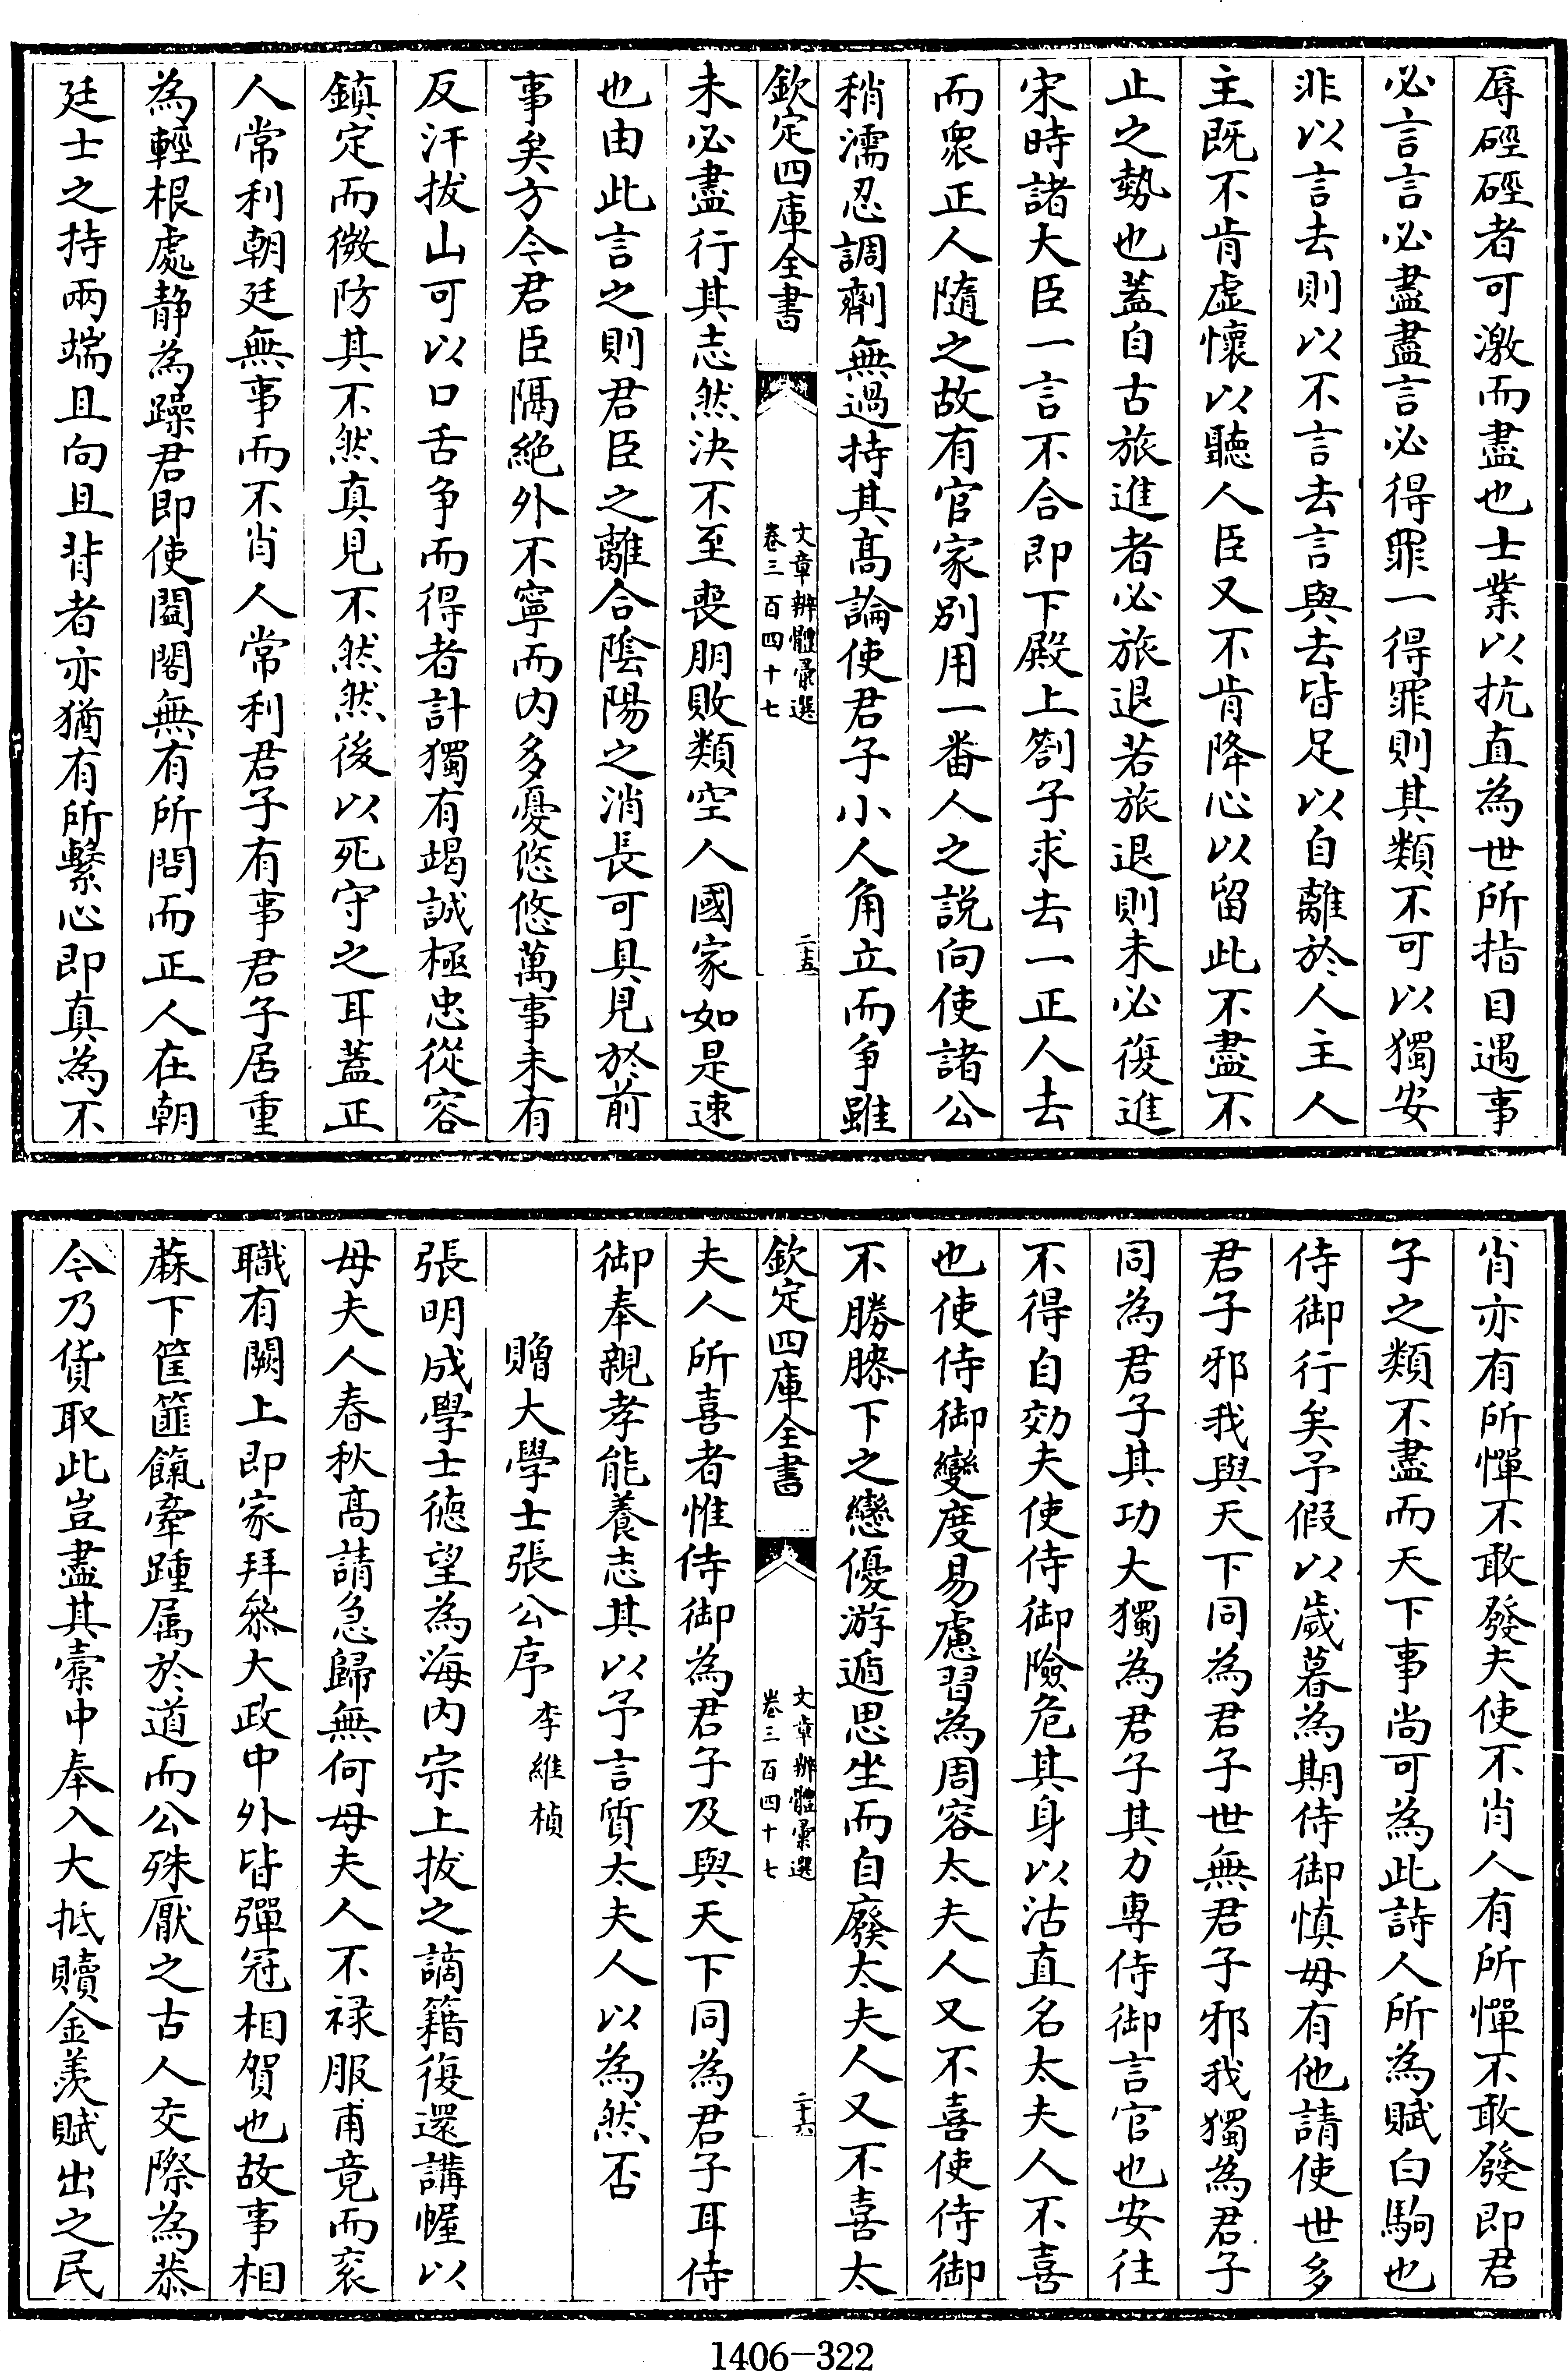 辱硜硜者可激而盡也士業以抗直為世所指目遇事
必言言必盡盡言必得罪一得罪則其類不可以獨安
非以言去則以不言去言與去皆足以自離於人主人
主既不肯虚懷以聽人臣又不肯降心以留此不盡不
止之勢也蓋自古旅進者必旅退若旅退則未必復進
宋時諸大臣一言不合即下殿上劄子求去一正人去
而衆正人隨之故有官家別用一番人之説向使諸公
稍濡忍調劑無過持其髙論使君子小人角立而争雖
欽定四庫全書
文章辨體彚選
卷三百四十七
二十五
未必盡行其志然決不至喪朋敗類空人國家如是速
也由此言之則君臣之離合陰陽之消長可具見於前
事矣方今君臣隔絶外不寧而内多憂悠悠萬事未有
反汗拔山可以口舌争而得者計獨有竭誠極忠從容
鎮定而微防其不然真見不然然後以死守之耳蓋正
人常利朝廷無事而不肖人常利君子有事君子居重
為輕根處静為躁君即使閶闔無有所問而正人在朝
廷士之持兩端且向且背者亦猶有所繫心即真為不
肖亦有所憚不敢發夫使不肖人有所憚不敢發即君
子之類不盡而天下事尚可為此詩人所為賦白駒也
侍御行矣予假以歲暮為期侍御慎毋有他請使世多
君子邪我與天下同為君子世無君子邪我獨為君子
同為君子其功大獨為君子其力專侍御言官也安往
不得自効夫使侍御險危其身以沽直名太夫人不喜
也使侍御變度易慮習為周容太夫人又不喜使侍御
不勝膝下之戀優游遁思坐而自廢太夫人又不喜太
欽定四庫全書
文章辨體彚選
卷三百四十七
二十六
夫人所喜者惟侍御為君子及與天下同為君子耳侍
御奉親孝能養志其以予言質太夫人以為然否
贈大學士張公序 李維楨
張明成學士徳望為海内宗上拔之謫籍復還講幄以
母夫人春秋髙請急歸無何母夫人不禄服甫竟而衮
職有闕上即家拜叅大政中外皆彈冠相賀也故事相
蔴下筐篚餼牽踵属於道而公殊厭之古人交際為恭
今乃貨取此豈盡其槖中奉入大抵贖金羡賦出之民
1406-322